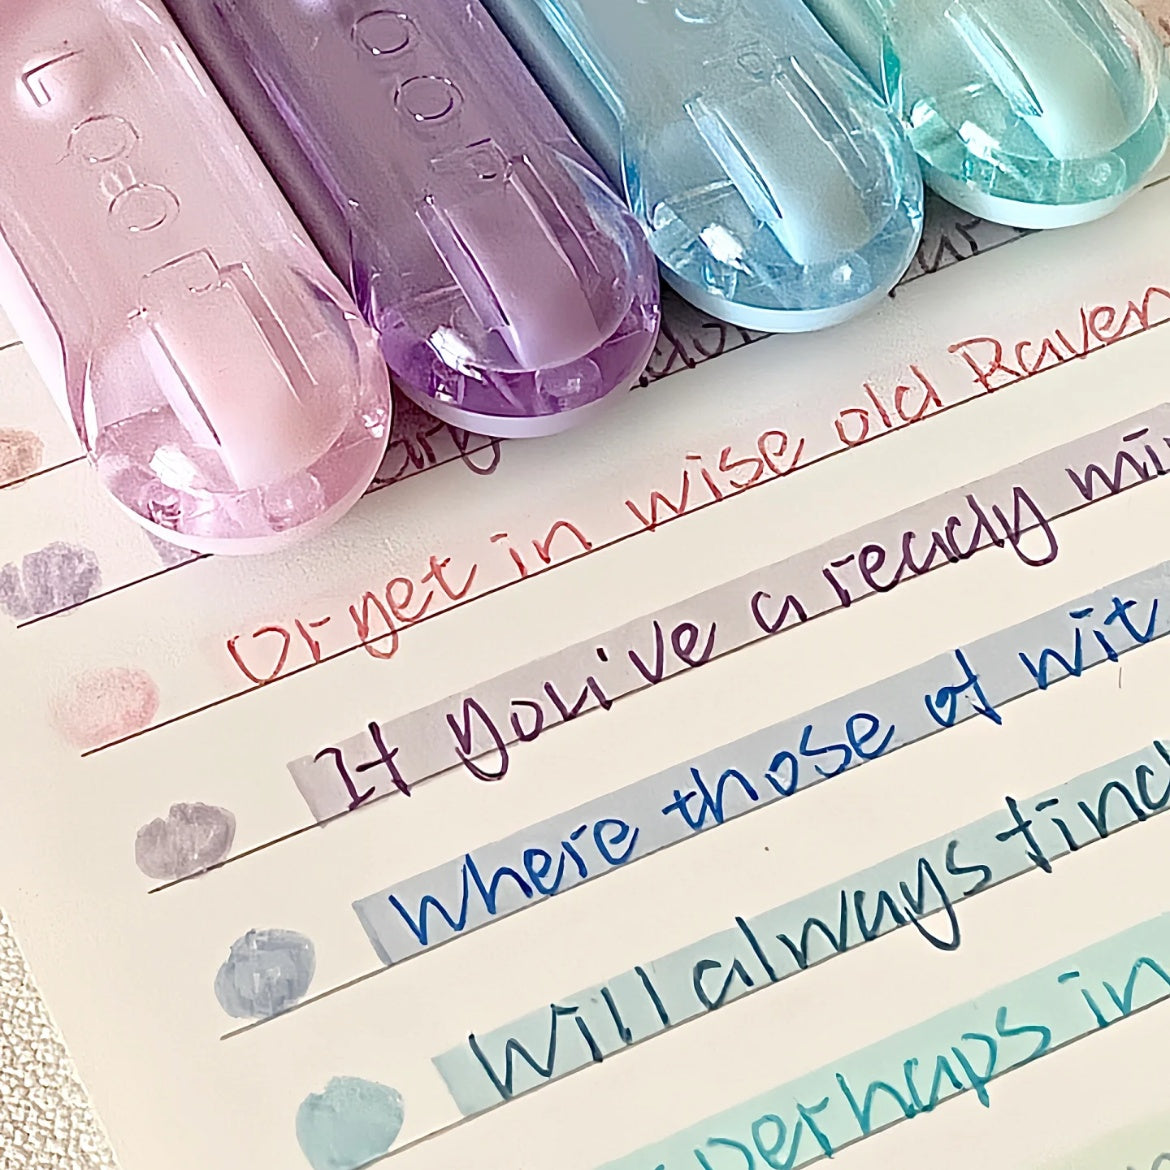 LOOP
LOOP
Or yet in wise old Raven
If you've a ready mi
Where those of wit
Will always find
perhaps in